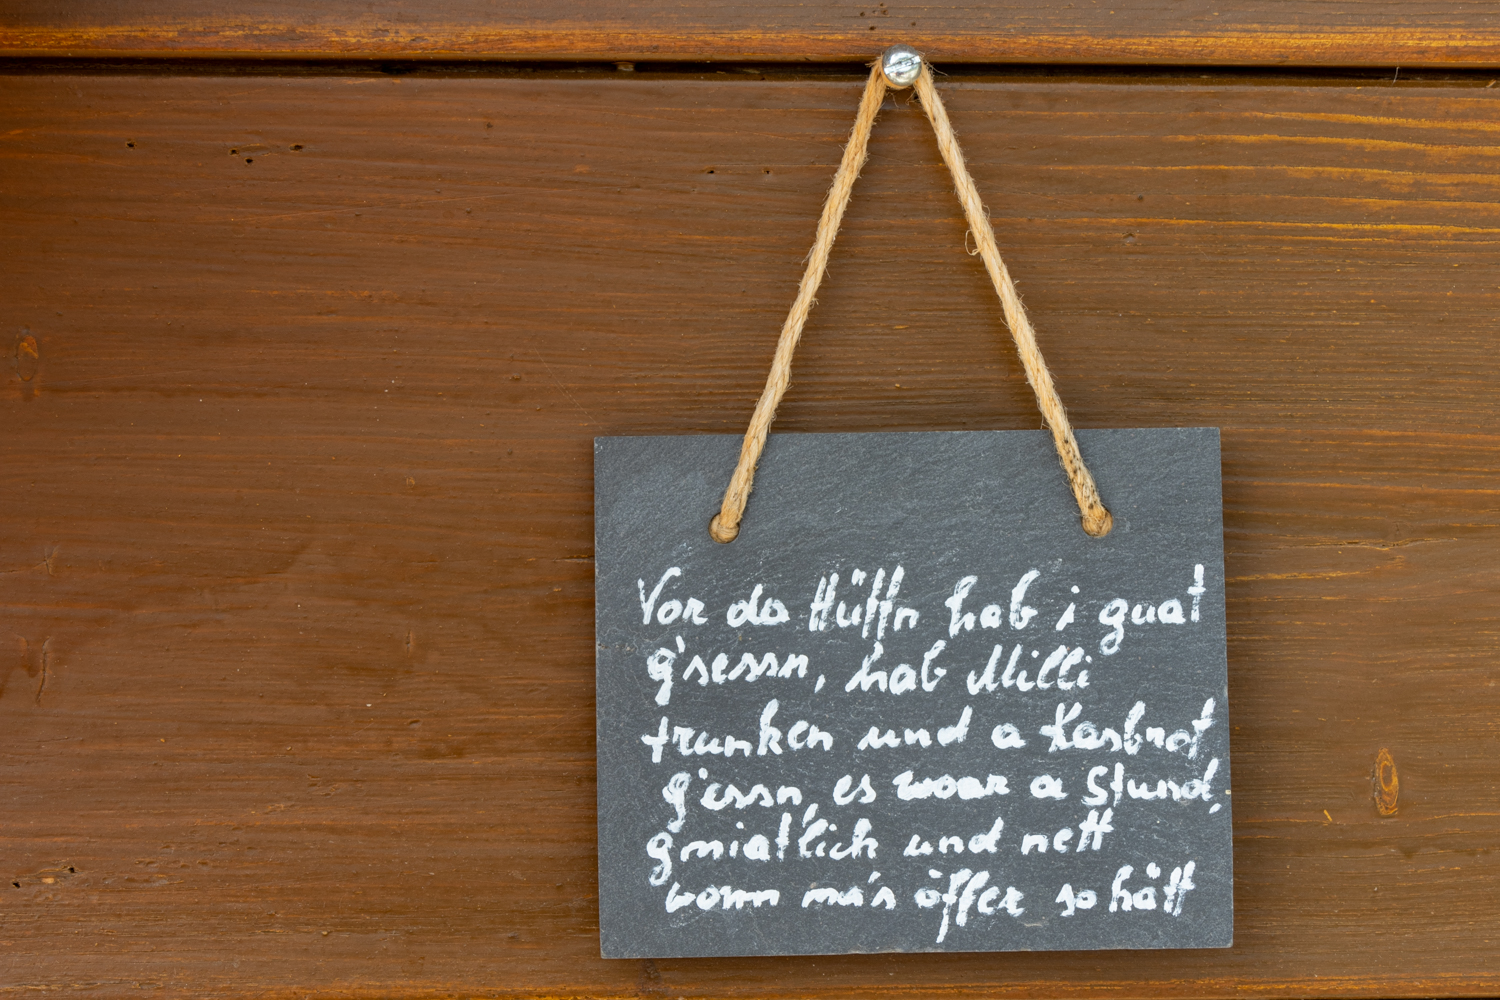 Vor da Hüttn hab i guat
g'sessn, hab Milli
trunken und a Kasbrot
g'essn, es woar a Stund,
gmiatlich und nett
wonn ma's öfter so hätt